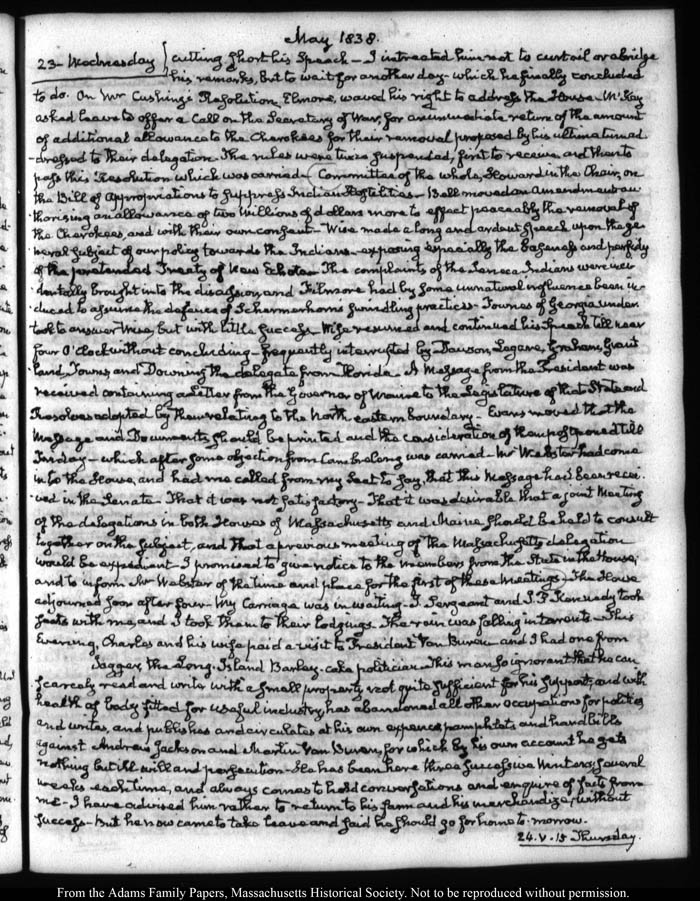 May 1838.
23- Wednesday cutting short his Speech – I intreated him not to curtail or abridge
his remarks, but to wait for another day – which he finally concluded
to do. On Mr Cushing's Resolution, Elmore, waved his right to address the House – McKay
asked leave to offer a Call on the Secretary of War, for an immediate return of the amount
of additional allowance to the Cherokees for their removal proposed by his ultimatum ad-
-dressed to their delegation. The rules were twice suspended, first to receive and then to
pass this Resolution which was carried – Committee of the whole, Howard in the Chair, on
the Bill of appropriations to suppress Indian Hostilities – Bell moved an Amendment au-
thorising an allowance of two Millions of dollars more to effect peaceably the removal of
the Cherokees, and with their own consent – Wise made a long and ardent speech upon the ge-
neral subject of our policy towards the Indians – exposing especially the baseness and perfidy
of the pretended Treaty of New Echota – The complaints of the Seneca Indians were inci-
dentally brought into the discussion, and Fillmore had by some unnatural influence been in-
duced to assume the defence of Schermerhorn's swindling practices – Townes of Georgia under-
took to answer Wise, but with little success – Wise resumed and continued his Speech till near
four O'Clock without concluding – frequently interrupted by Dawson, Legare, Graham, Grant-
land, Towns, and Downing the delegate from Florida – A Message from the President was
received containing a Letter from the Governor of Maine to the Legislature of that State and
Resolves adopted by them relating to the North eastern boundary – Evans moved that the
Message and Documents should be printed and the consideration of them postponed till
Friday – which after some objection from Cambreleng was carried – Mr Webster had come
in to the House, and had me called from my Seat to say, that this Message had been recei-
ved in the Senate – That it was not satisfactory – That it was desirable that a joint Meeting
of the delegations in both Houses of Massachusetts and Maine should be held to consult
together on the subject, and that a previous meeting of the Massachusetts delegation
would be expedient – I promised to give notice to the members from the State in the House,
and to inform Mr Webster of the time and place for the first of these Meetings – The House
adjourned soon after four – My Carriage was in waiting – J. Sergeant and J. P. Kennedy took
seats with me, and I took them to their lodgings. The rain was falling in torrents – This
Evening, Charles and his wife paid a visit to President Van Buren – and I had one from
Jagger, the Long-Island Barley-cake politician – This man so ignorant that he can
scarcely read and write with a small property, not quite sufficient for his support, and with
health of body fitted for useful industry, has abandoned all other occupations for politics
and writes, and publishes and circulates at his own expence, pamphlets and handbills
against Andrew Jackson and Martin Van Buren, for which by his own account he gets
nothing but ill will and persecution – He has been here three successive Winters, several
weeks each time, and always comes to hold conversations and enquire of facts from
me – I have advised him rather to return to his farm and his merchandize, without
success – But he now came to take leave and said he should go for home to-morrow.
24. V. 15 Thursday.
From the Adams Family Papers, Massachusetts Historical Society. Not to be reproduced without permission.